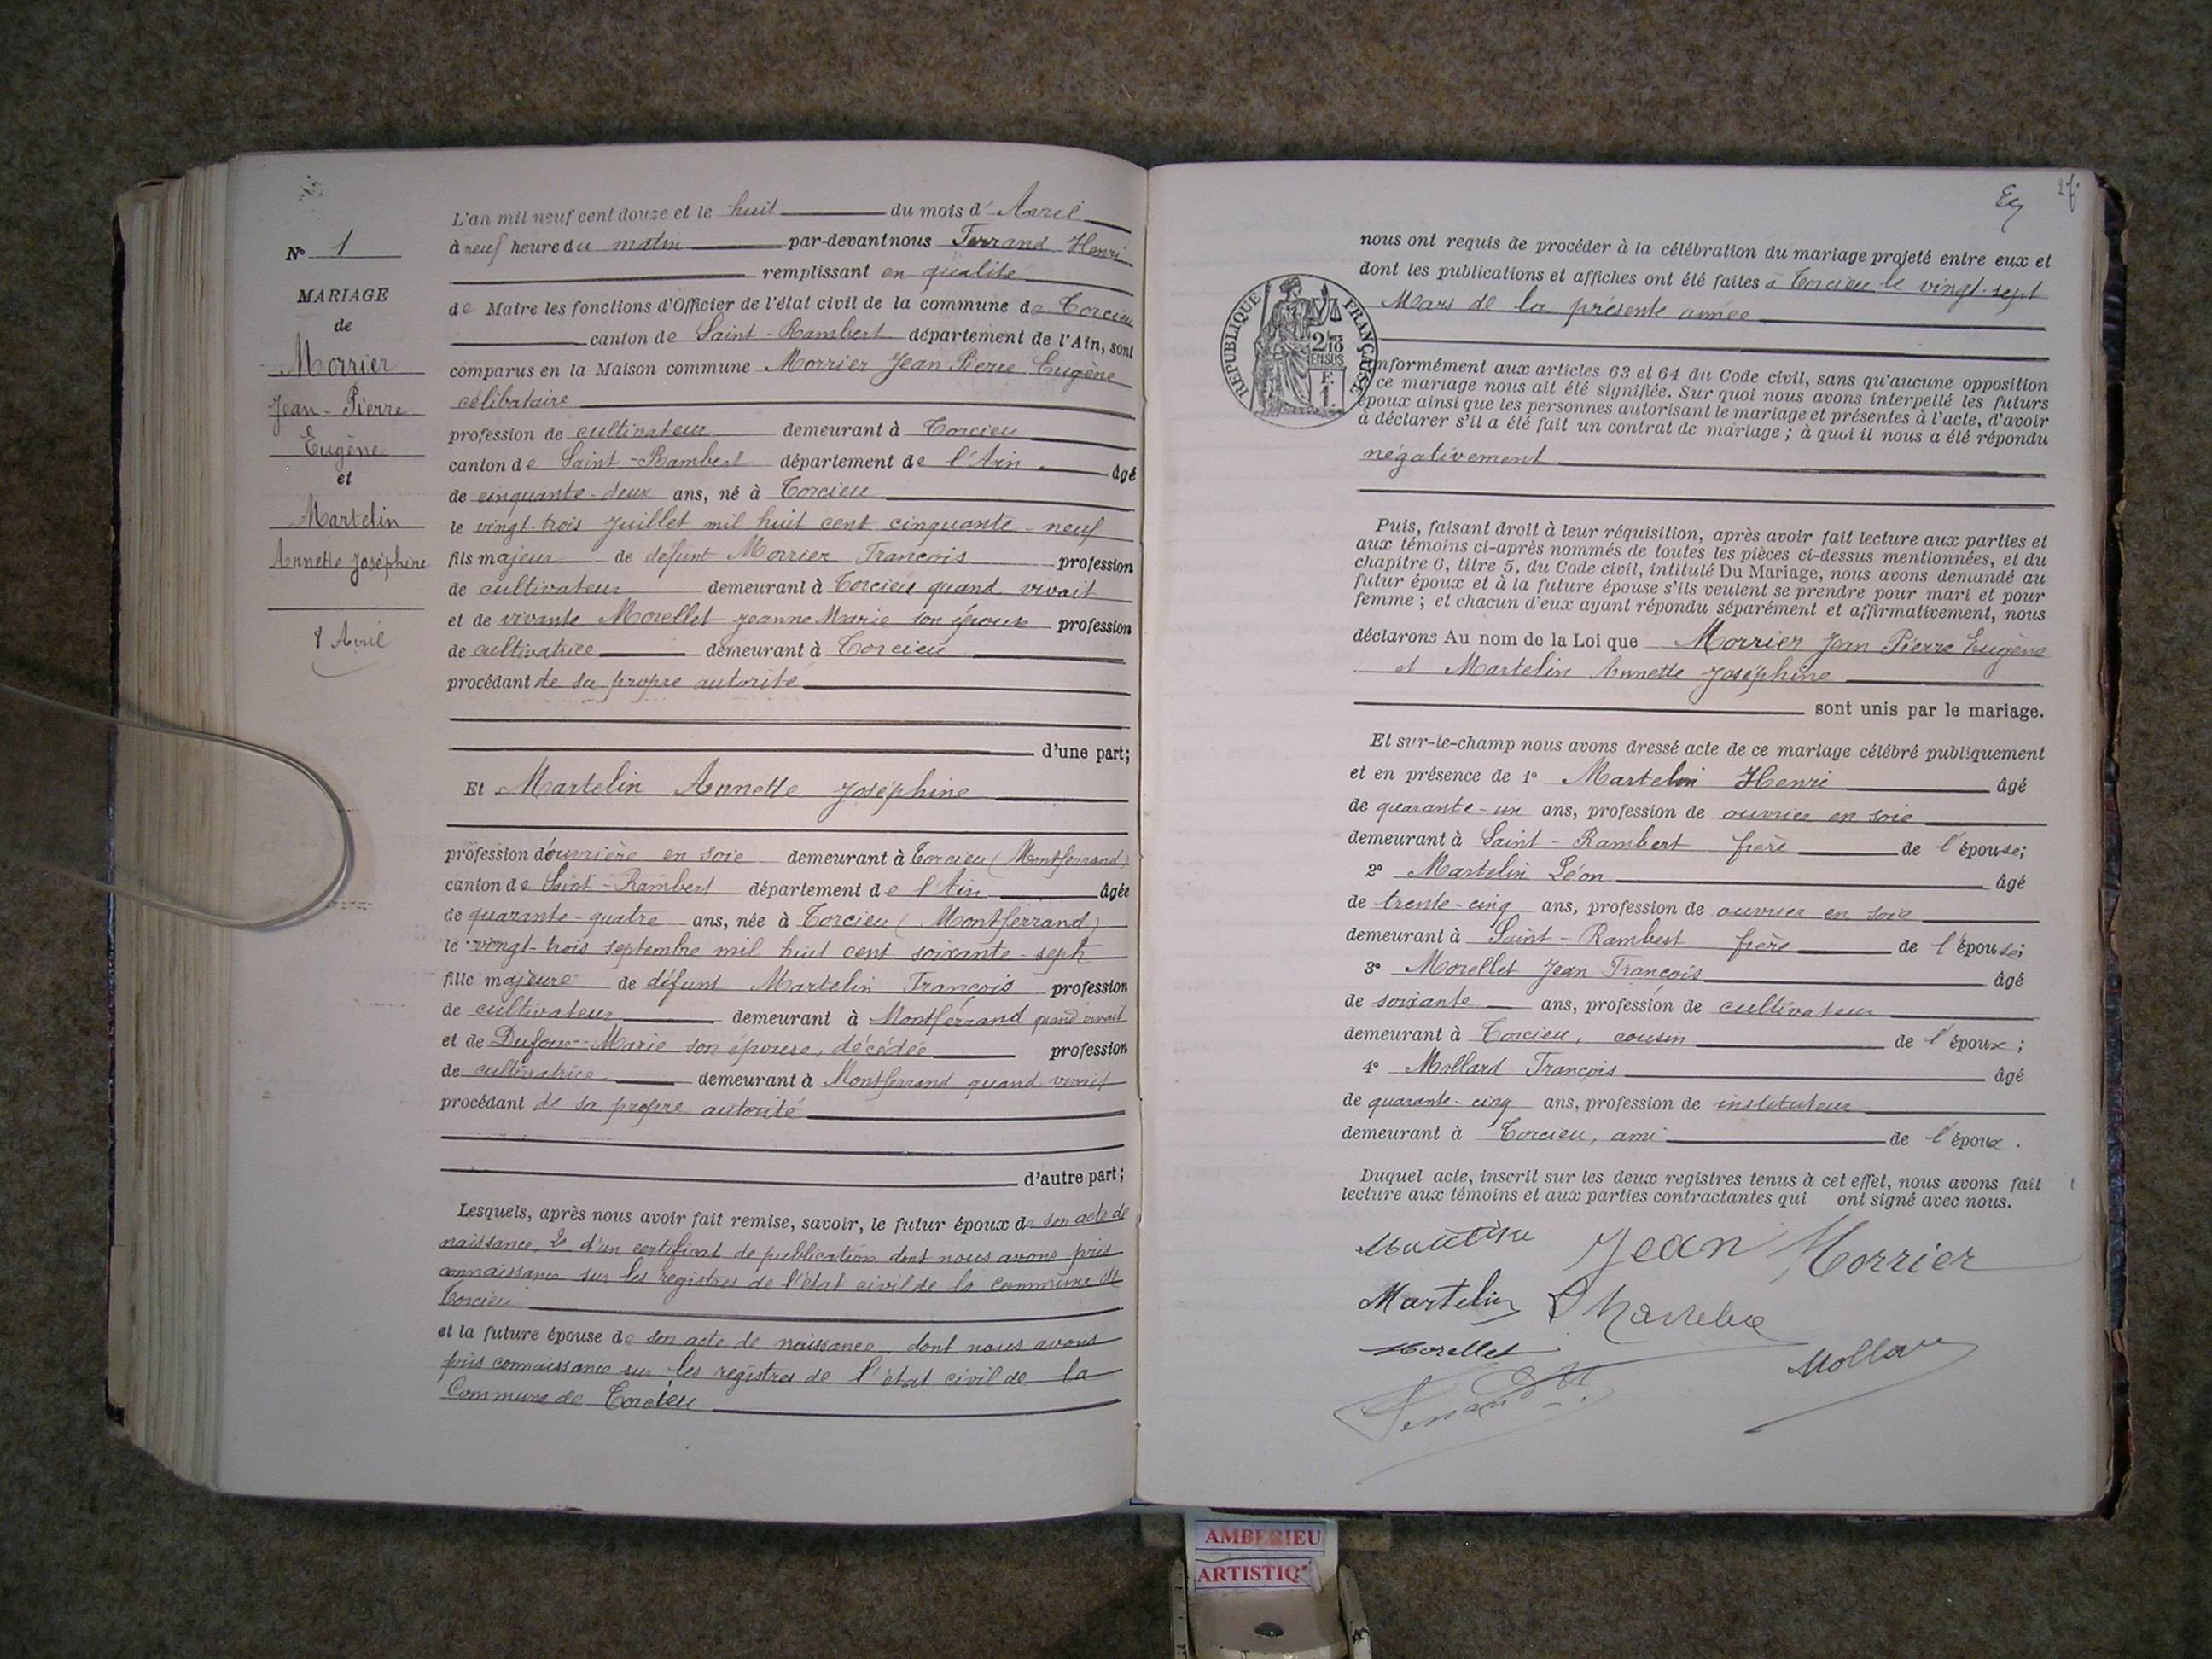 L'an mil neuf cent douze et le huit du mois d'Avril
à neuf heure du matin par-devant nous Ferrand Henri
remplissant en qualité
de Maire les fonctions d'Officier de l'état civil de la commune de Torcieu
canton de Saint-Rambert département de l'Ain, sont
comparus en la Maison commune Morrier Jean Pierre Eugène
célibataire
profession de cultivateur demeurant à Torcieu
canton de Saint-Rambert département de l'Ain âgé
de cinquante-deux ans, né à Torcieu
le vingt-trois Juillet mil huit cent cinquante-neuf
fils majeur de défunt Morrier François profession
de cultivateur demeurant à Torcieu quand vivait
et de vivante Morellet Jeanne Marie son épouse profession
de cultivatrice demeurant à Torcieu
procédant de sa propre autorité
d'une part;
Et Martelin Annette Joséphine
profession d'ouvrière en soie demeurant à Torcieu (Montferrand)
canton de Saint-Rambert département de l'Ain âgée
de quarante-quatre ans, née à Torcieu (Montferrand)
le vingt-trois septembre mil huit cent soixante-sept
fille majeure de défunt Martelin François profession
de cultivateur demeurant à Montferrand quand vivait
et de Dufour Marie son épouse, décédée profession
de cultivatrice demeurant à Montferrand quand vivait
procédant de sa propre autorité
d'autre part;
Lesquels, après nous avoir fait remise, savoir, le futur époux de son acte de
naissance, 2° d'un certificat de publication dont nous avons pris
connaissance sur les registres de l'état civil de la commune de
Torcieu
et la future épouse de son acte de naissance dont nous avons
pris connaissance sur les registres de l'état civil de la
Commune de Torcieu
N° 1
MARIAGE
de
Morrier
Jean-Pierre
Eugène
et
Martelin
Annette Joséphine
8 Avril
27
nous ont requis de procéder à la célébration du mariage projeté entre eux et
dont les publications et affiches ont été faites à Torcieu le vingt-sept
Mars de la présente année
RÉPUBLIQUE FRANÇAISE
2/10 EN SUS
F. 1.
nformément aux articles 63 et 64 du Code civil, sans qu'aucune opposition
ce mariage nous ait été signifiée. Sur quoi nous avons interpellé les futurs
époux ainsi que les personnes autorisant le mariage et présentes à l'acte, d'avoir
à déclarer s'il a été fait un contrat de mariage ; à quoi il nous a été répondu
négativement
Puis, faisant droit à leur réquisition, après avoir fait lecture aux parties et
aux témoins ci-après nommés de toutes les pièces ci-dessus mentionnées, et du
chapitre 6, titre 5, du Code civil, intitulé Du Mariage, nous avons demandé au
futur époux et à la future épouse s'ils veulent se prendre pour mari et pour
femme ; et chacun d'eux ayant répondu séparément et affirmativement, nous
déclarons Au nom de la Loi que Morrier Jean Pierre Eugène
et Martelin Annette Joséphine
sont unis par le mariage.
Et sur-le-champ nous avons dressé acte de ce mariage célébré publiquement
et en présence de 1° Martelin Henri âgé
de quarante-un ans, profession de ouvrier en soie
demeurant à Saint-Rambert frère de l'épouse;
2° Martelin Léon âgé
de trente-cinq ans, profession de ouvrier en soie
demeurant à Saint-Rambert frère de l'épouse;
3° Morellet Jean François âgé
de soixante ans, profession de cultivateur
demeurant à Torcieu, cousin de l'époux ;
4° Mollard François âgé
de quarante-cinq ans, profession de instituteur
demeurant à Torcieu, ami de l'époux.
Duquel acte, inscrit sur les deux registres tenus à cet effet, nous avons fait
lecture aux témoins et aux parties contractantes qui ont signé avec nous.
Jean Morrier
Martelin
Morellet
AMBERIEU
ARTISTIQ